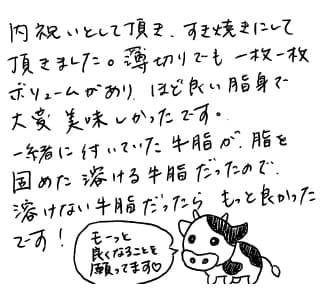 内祝いとして頂き、すき焼きにして
頂きました。薄切りでも一枚一枚
ボリュームがあり、ほど良い脂身で
大変美味しかったです。
一緒に付いていた牛脂が、脂を
固めた溶ける牛脂だったので、
溶けない牛脂だったら もっと良かった
です！
モーっと
良くなることを
願ってます♡